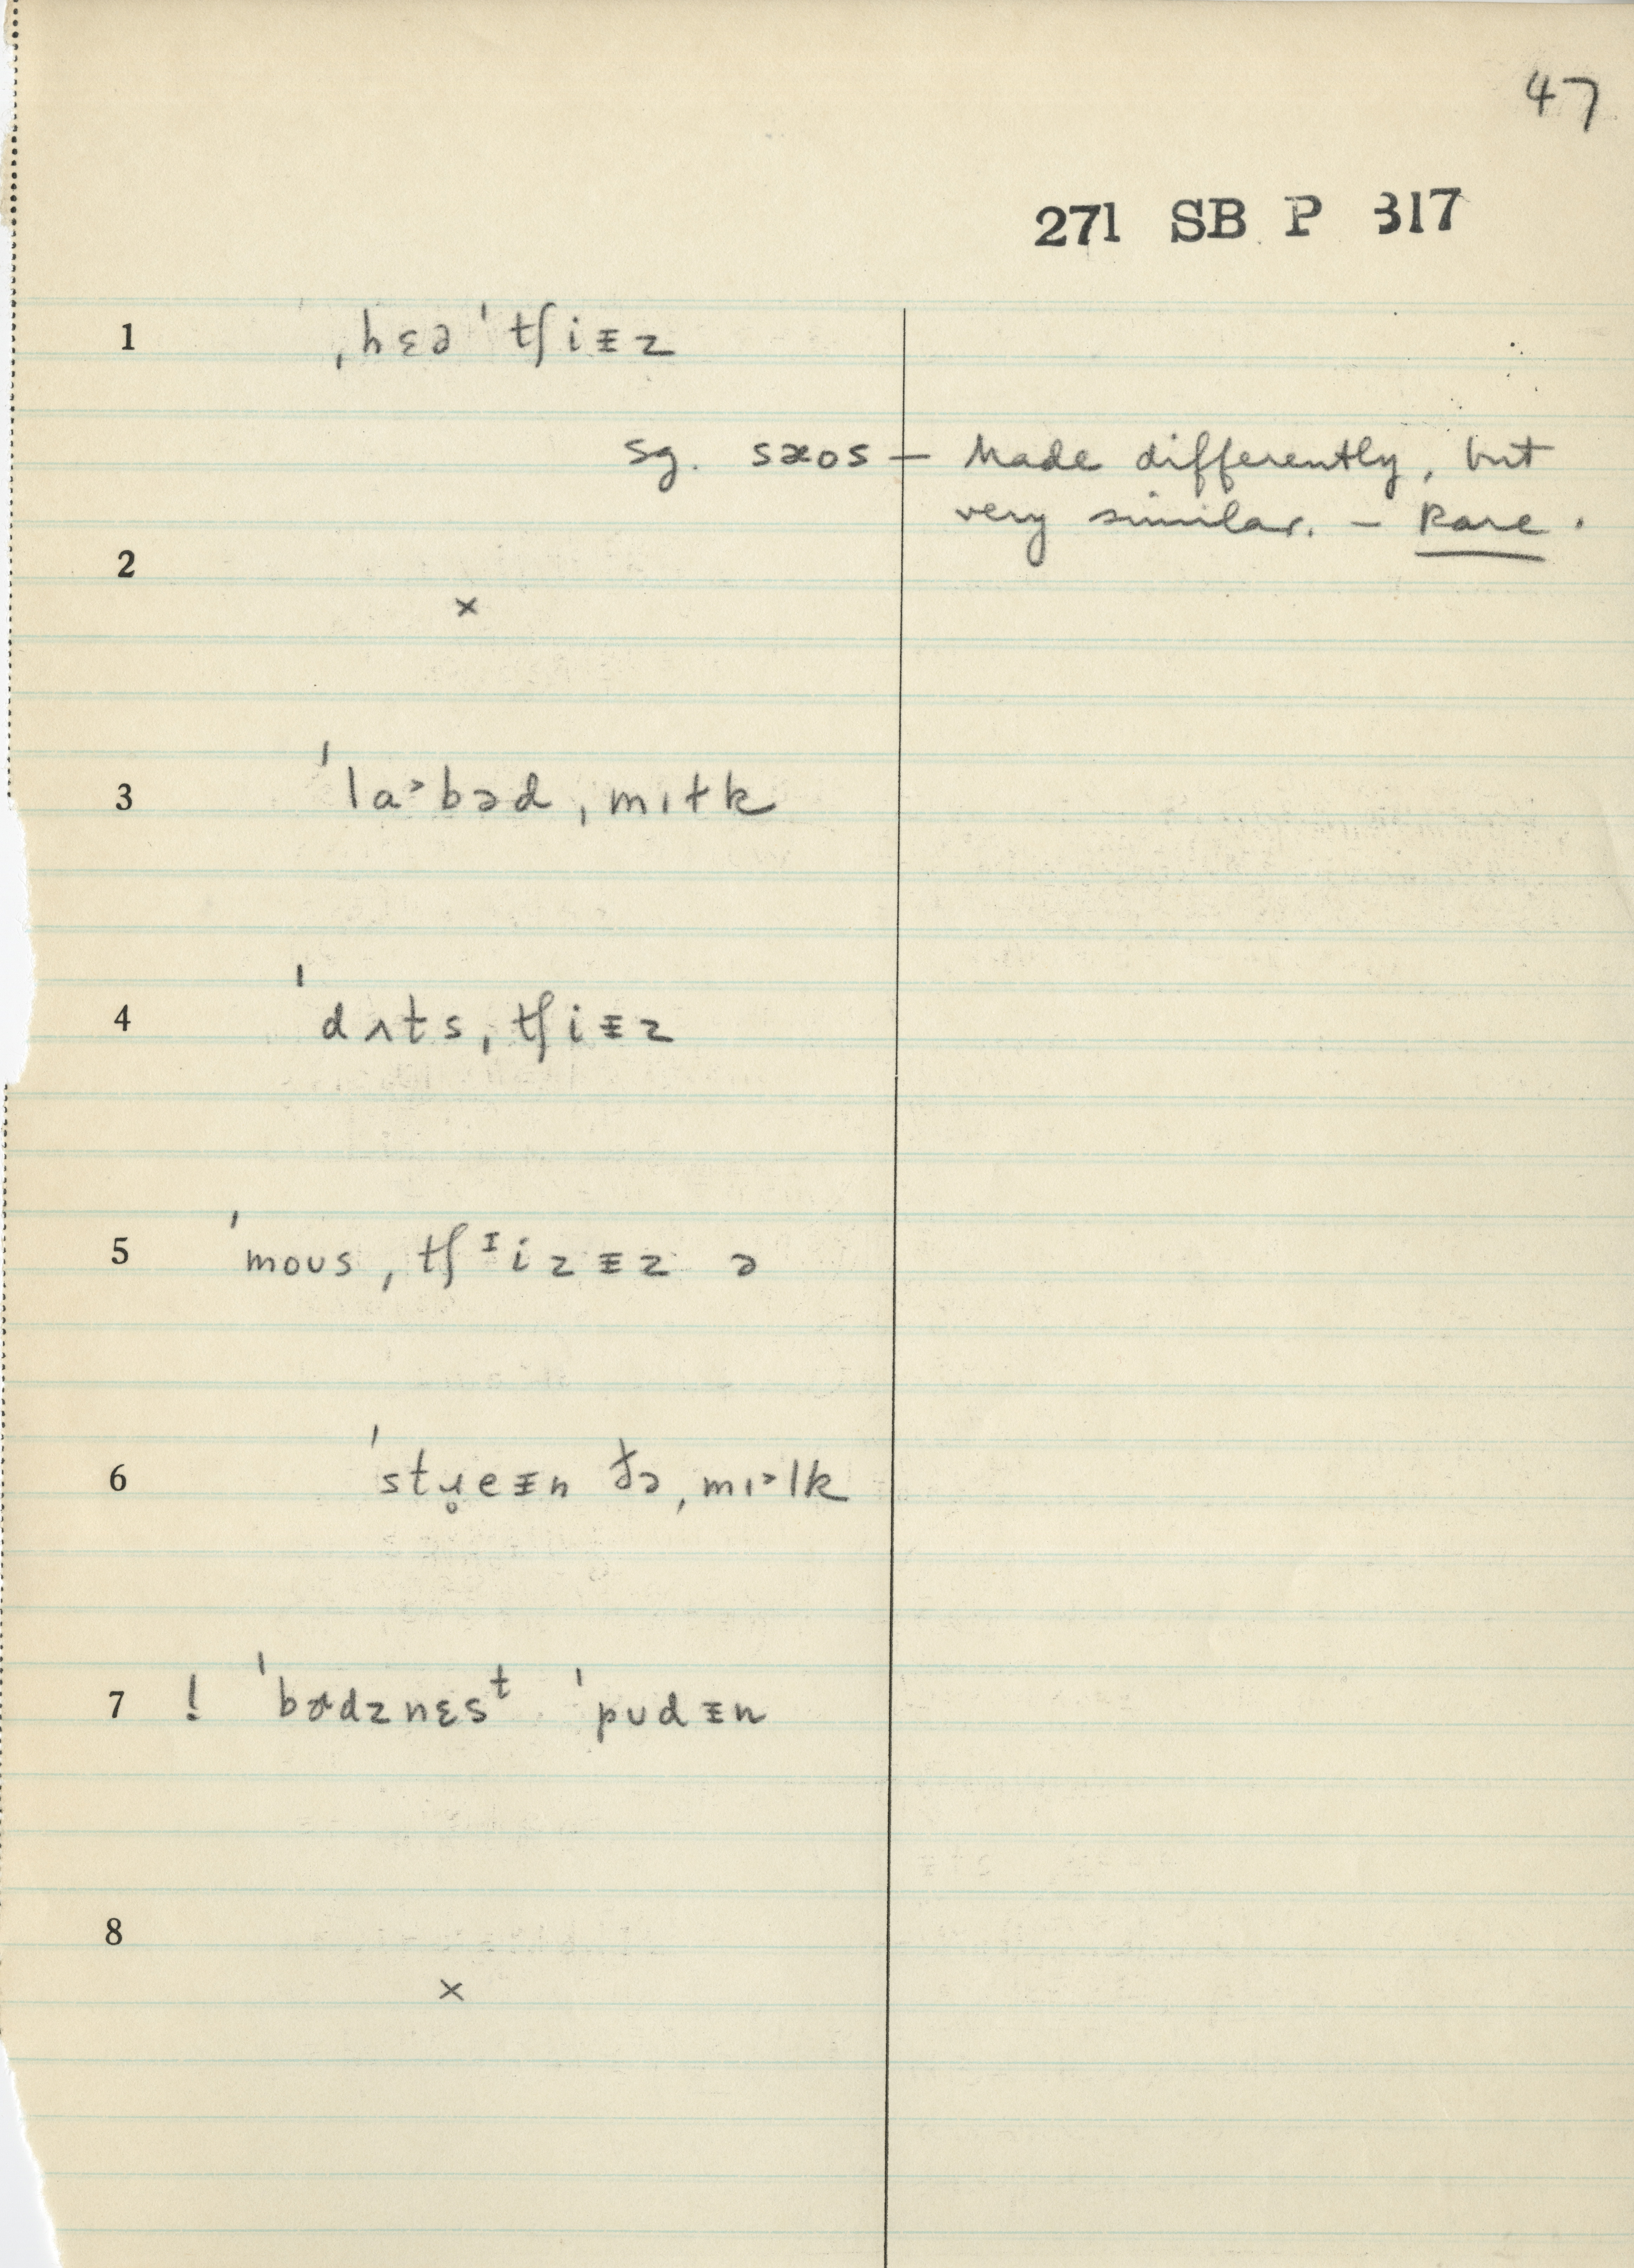 47
271 SB P 317
1 ˌhɛə ˈtʃiᵻz
sg. sæos — Made differently, but
very similar. – Rare.
2
×
3 ˈla˃bəd ˌmɪɫk
4 ˈdʌts ˌtʃiᵻz
5 ˈmoʊs ˌtʃᶦizᵻz ə
6 ˈstɹ̥eᵻn ðə ˌmɪ˃lk
7 ! ˈbɚdznɛsᵗ ˈpʊdᵻn
8
×